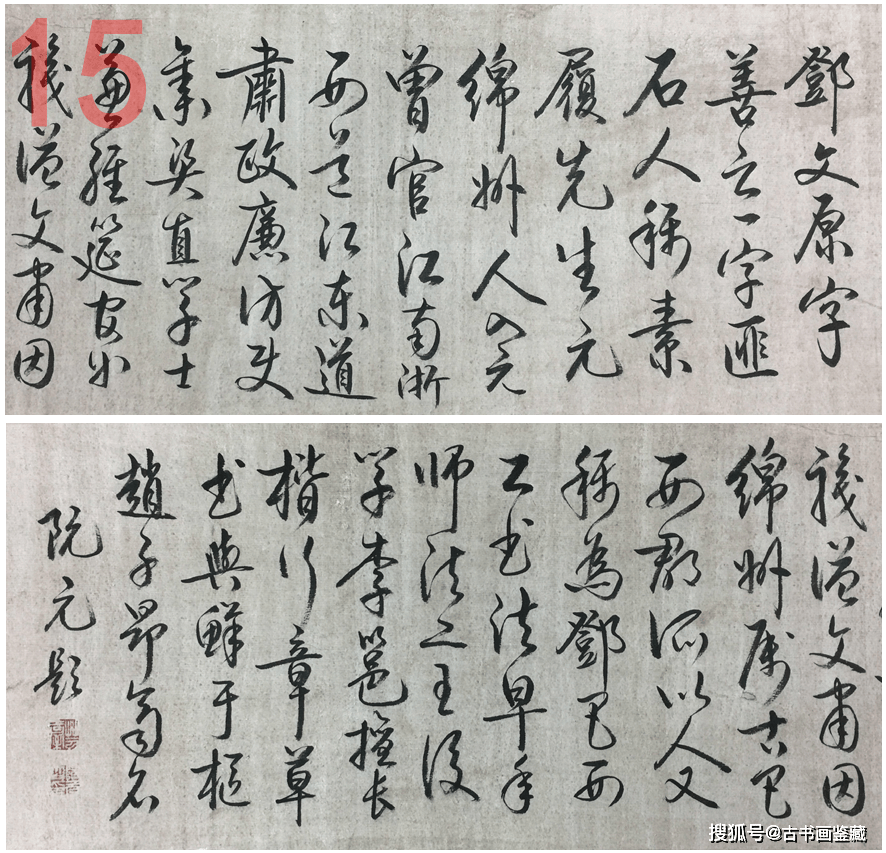 15
鄧文原字
善之一字匪
石人稱素
履先生元
綿州人入元
曾官江南浙
西道江東道
肅政廉訪使
集賢直學士
兼經筵官
謚文肅因
謚文肅因
綿州屬古巴
西郡所以人又
稱為鄧巴西
工書法早年
师法二王後
學李邕擅長
楷行章草
書與鮮于樞
趙子昂齊名
阮元題
搜狐号@古书画鉴藏